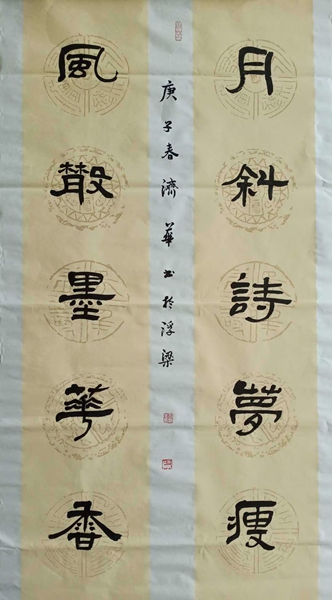 月斜詩夢瘦
風散墨華香
庚子春濟華书於浮梁